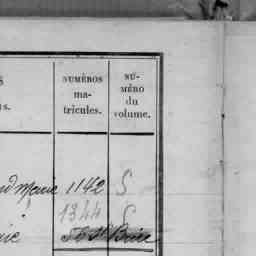 S
us.
NUMÉROS
ma-
tricules.
NU-
MÉRO
du
volume.
Marie 1142 S
1344 S